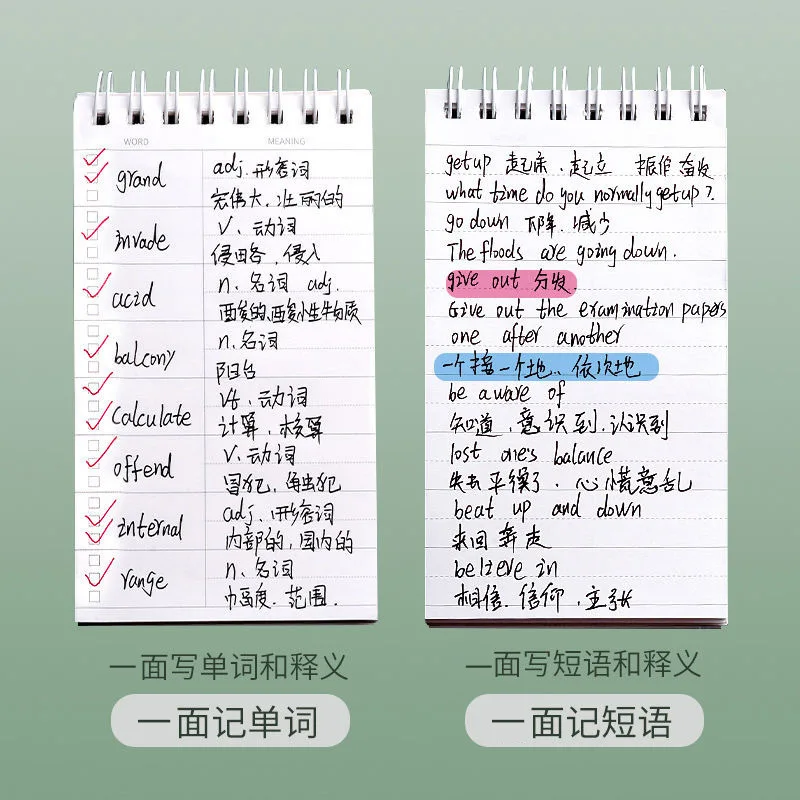 WORD MEANING
grand adj. 形容词
宏伟大、壮丽的
invade v. 动词
侵略、侵入
acid n. 名词 adj.
酸的、酸小生物质
balcony n. 名词
阳台
calculate vt. 动词
计算、核算
offend v. 动词
冒犯、触犯
internal adj. 形容词
内部的,国内的
range n. 名词
幅度、范围.
get up 起床、起立 振作奋发
what time do you normally get up?
go down 下降、减少
The floods are going down.
give out 分发.
Give out the examination papers
one after another
一个接一个地、依次地
be aware of
知道、意识到、认识到
lost one's balance
失去平衡了、心慌意乱
beat up and down
来回奔走
believe in
相信、信仰、主张
一面写单词和释义
一面记单词
一面写短语和释义
一面记短语